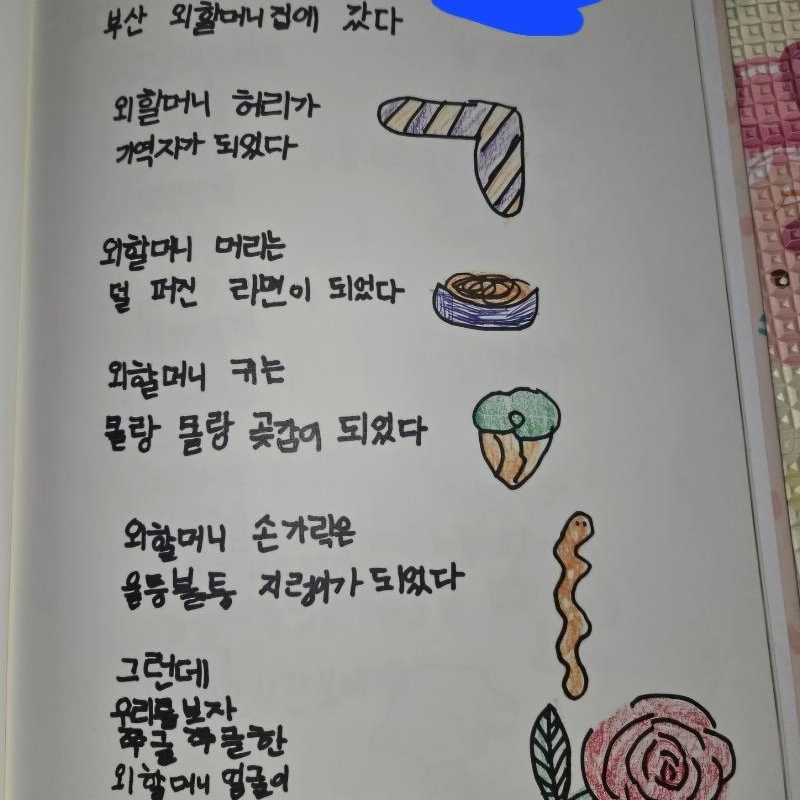 부산 외할머니 집에 갔다
외할머니 허리가
기역자가 되었다
외할머니 머리는
덜 퍼진 라면이 되었다
외할머니 귀는
물랑 물랑 곶감이 되었다
외할머니 손가락은
울퉁불퉁 지렁이가 되었다
그런데
우리를 보자
쭈글 쭈글한
외할머니 얼굴이